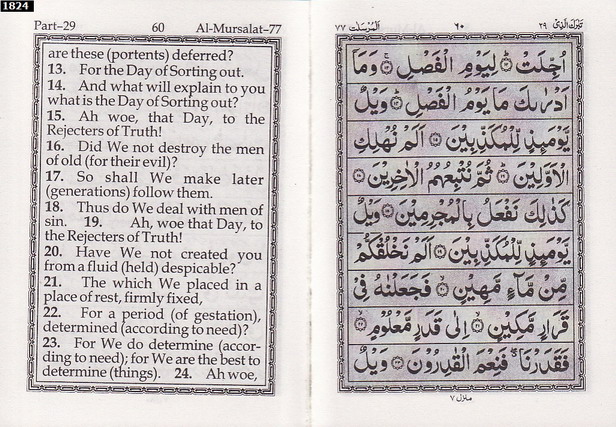 1824
Part-29 60 Al-Mursalat-77
are these (portents) deferred?
13. For the Day of Sorting out.
14. And what will explain to you
what is the Day of Sorting out?
15. Ah woe, that Day, to the
Rejecters of Truth!
16. Did We not destroy the men
of old (for their evil)?
17. So shall We make later
(generations) follow them.
18. Thus do We deal with men of
sin. 19. Ah, woe that Day, to
the Rejecters of Truth!
20. Have We not created you
from a fluid (held) despicable?
21. The which We placed in a
place of rest, firmly fixed,
22. For a period (of gestation),
determined (according to need)?
23. For We do determine (accor-
ding to need); for We are the best to
determine (things). 24. Ah woe,
تبٰرك الذی ٢٩ ٦٠ المرسلٰت ٧٧
اُجِّلَتْ ۝ لِيَوْمِ الْفَصْلِ ۝ وَمَاۤ
اَدْرٰىكَ مَا يَوْمُ الْفَصْلِ ۝ وَيْلٌ
يَّوْمَىِٕذٍ لِّلْمُكَذِّبِيْنَ ۝ اَلَمْ نُهْلِكِ
الْاَوَّلِيْنَ ۝ ثُمَّ نُتْبِعُهُمُ الْاٰخِرِيْنَ ۝
كَذٰلِكَ نَفْعَلُ بِالْمُجْرِمِيْنَ ۝ وَيْلٌ
يَّوْمَىِٕذٍ لِّلْمُكَذِّبِيْنَ ۝ اَلَمْ نَخْلُقْكُّمْ
مِّنْ مَّآءٍ مَّهِيْنٍ ۝ فَجَعَلْنٰهُ فِىْ
قَرَارٍ مَّكِيْنٍ ۝ اِلٰى قَدَرٍ مَّعْلُوْمٍ ۝
فَقَدَرْنَا ۖ فَنِعْمَ الْقٰدِرُوْنَ ۝ وَيْلٌ
منزل ٧